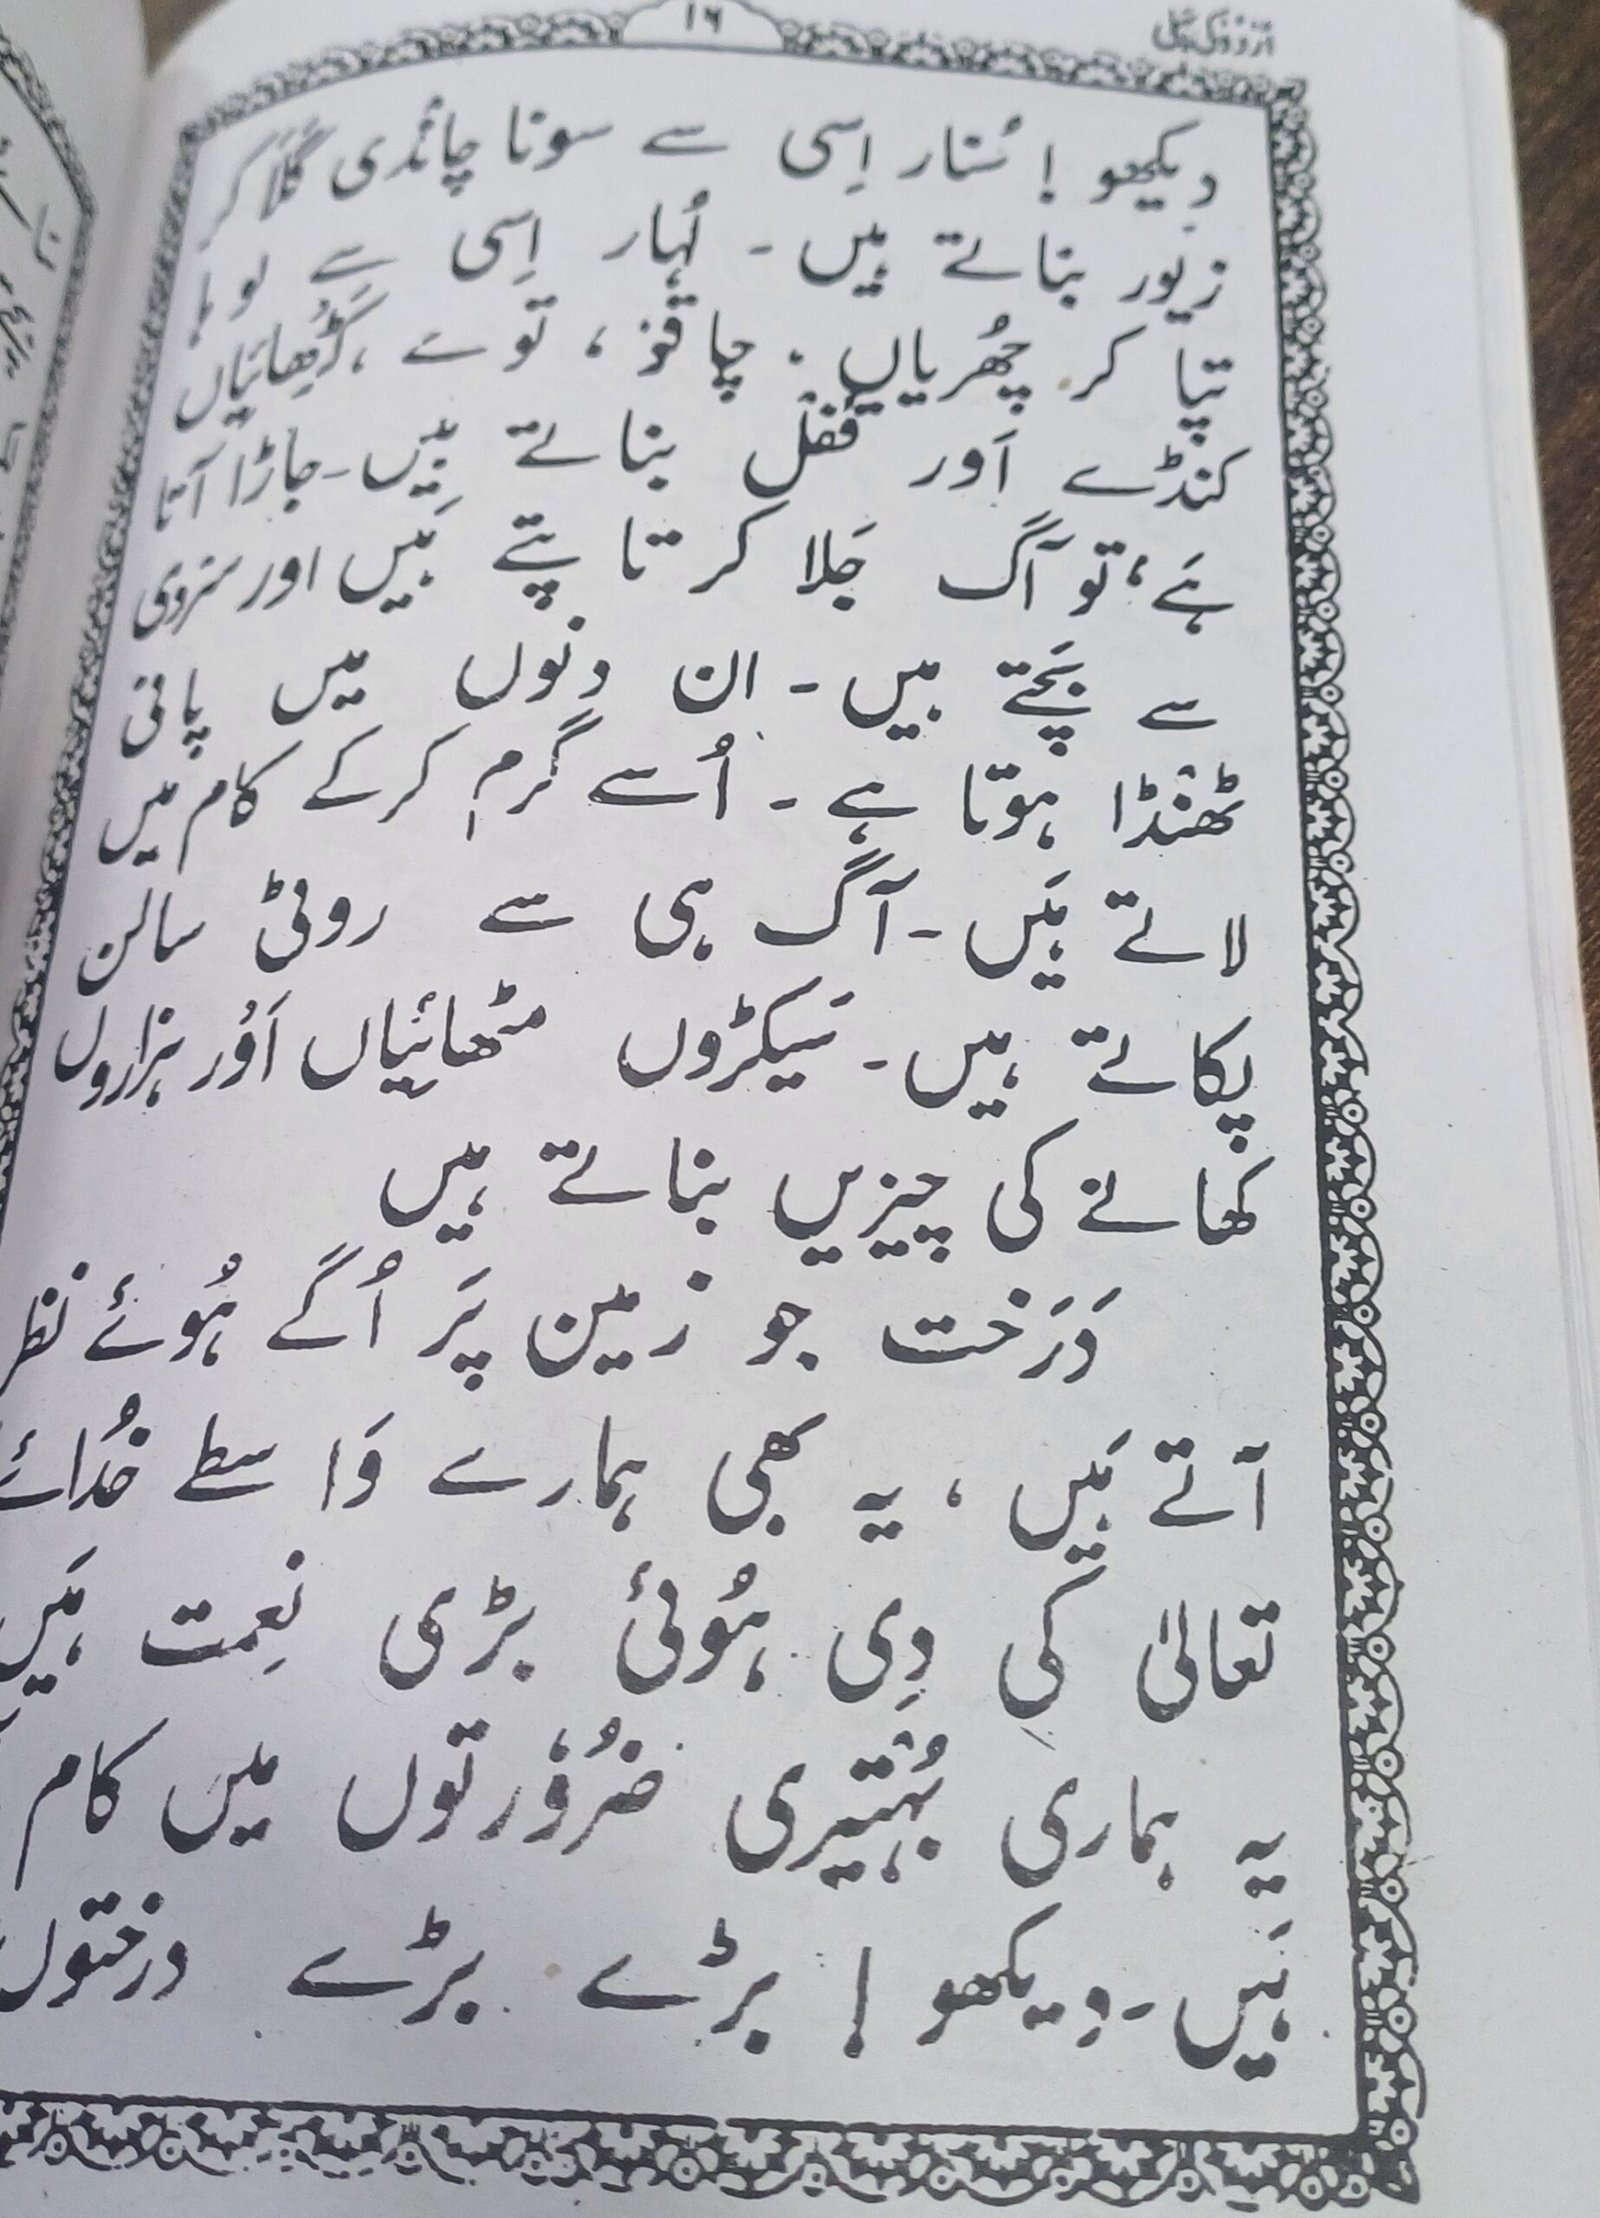 ۱۶
اُردو کی
دیکھو ! سُنار اِسی سے سونا چاندی گَلَا کر
زیور بناتے ہیں ۔ لُہار اِسی سے لوہا
تپا کر چھُریاں ، چاقو ، توے ، کَڑھائیاں
کنڈے اَور قُفْل بناتے ہَیں ۔ جاڑا آتا
ہَے ، تو آگ جَلا کر تاپتے ہَیں اور سردی
سے بَچتے ہیں ۔ ان دنوں میں پانی
ٹھنْڈا ہوتا ہے ۔ اُسے گرم کر کے کام میں
لاتے ہَیں ۔ آگ ہی سے روٹی سالن
پکاتے ہیں ۔ سَیکڑوں مٹھائیاں اَوُر ہزاروں
کھانے کی چیزیں بناتے ہیں
دَرَخت جو زمین پَر اُگے ہُوئے نظر
آتے ہَیں ، یہ بھی ہمارے وَاسطے خُدائے
تعالیٰ کی دِی ہُوئی بڑی نِعمت ہَیں
یہ ہماری بُہْتیری ضُرُوْرتوں میں کام
ہَیں ۔ دیکھو ! بڑے بڑے درختوں